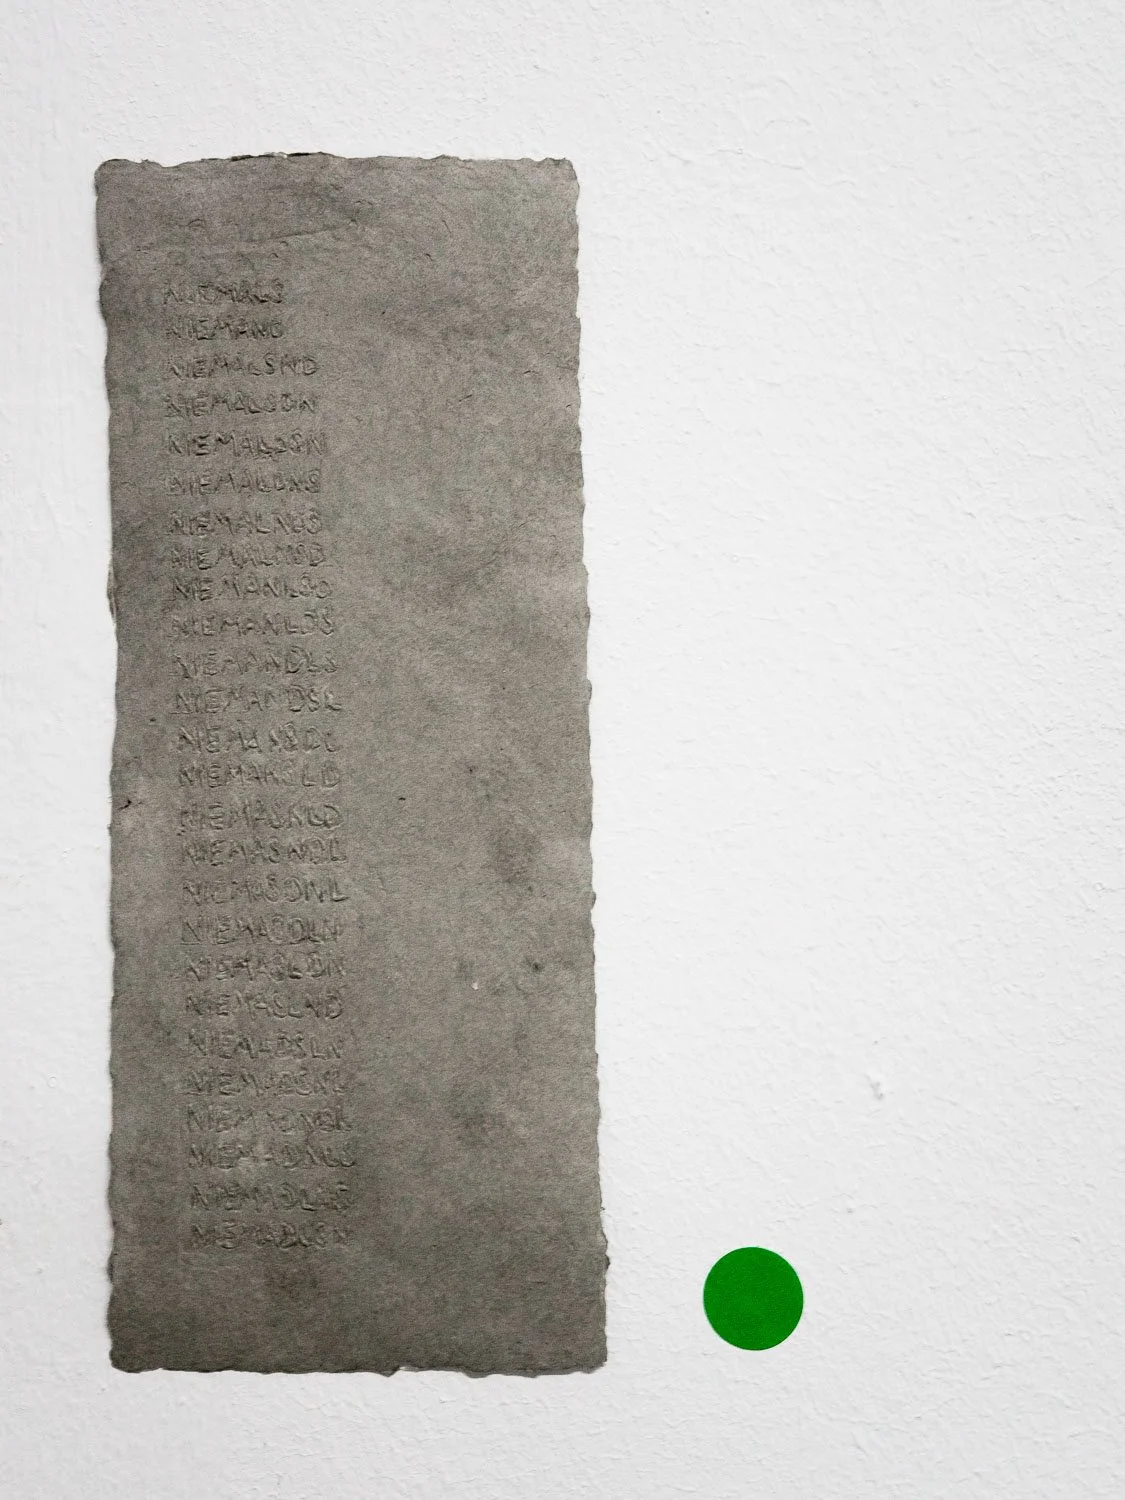 NIEMALS
NIEMAND
NIEMALSND
NIEMALSDN
NIEMALDSN
NIEMALDNS
NIEMALNDS
NIEMALNSD
NIEMANLSD
NIEMANLDS
NIEMANDLS
NIEMANDSL
NIEMANSDL
NIEMANSLD
NIEMASNLD
NIEMASNDL
NIEMASDNL
NIEMASDLN
NIEMASLDN
NIEMASLND
NIEMADSLN
NIEMADSNL
NIEMADNSL
NIEMADNLS
NIEMADLNS
NIEMADLSN